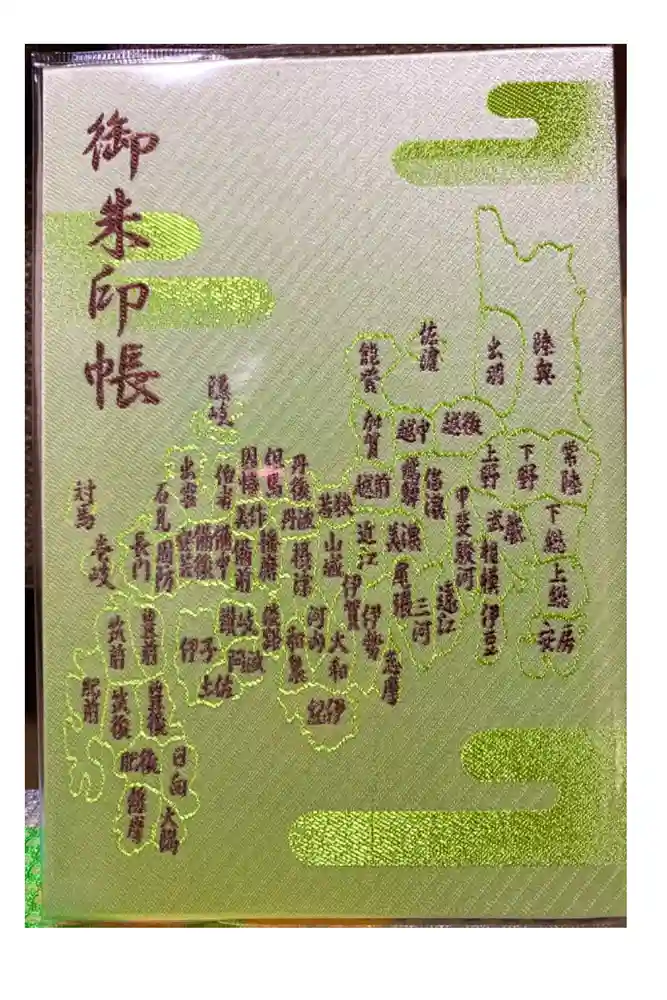 御朱印帳
陸奥
出羽
佐渡
能登
加賀
越中
越後
常陸
下野
上野
飛騨
信濃
越前
武蔵
下総
上総
安房
甲斐
相模
駿河
伊豆
遠江
三河
尾張
美濃
近江
若狭
丹後
丹波
但馬
因幡
美作
伯耆
出雲
隠岐
石見
安芸
備後
備中
備前
播磨
摂津
山城
伊賀
伊勢
志摩
大和
河内
和泉
紀伊
淡路
讃岐
阿波
伊予
土佐
長門
周防
対馬
壱岐
筑前
豊前
肥前
筑後
豊後
肥後
日向
薩摩
大隅